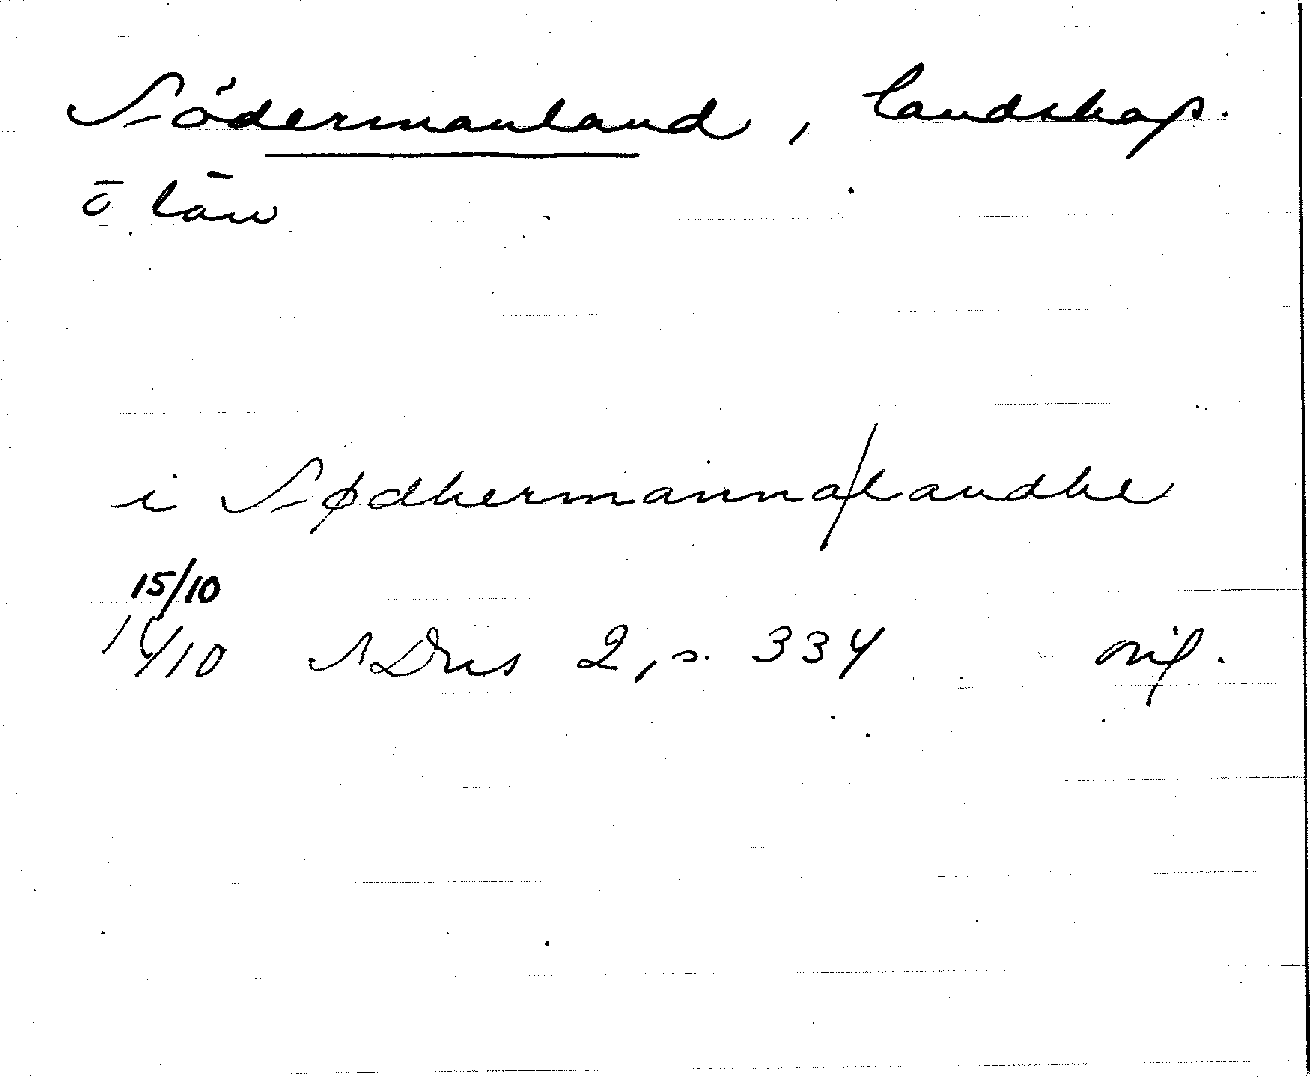 Södermanland, landskap.
o län
i Sødhermanna/landhe
15/10
14/10 NDns 2, s. 334 orig.